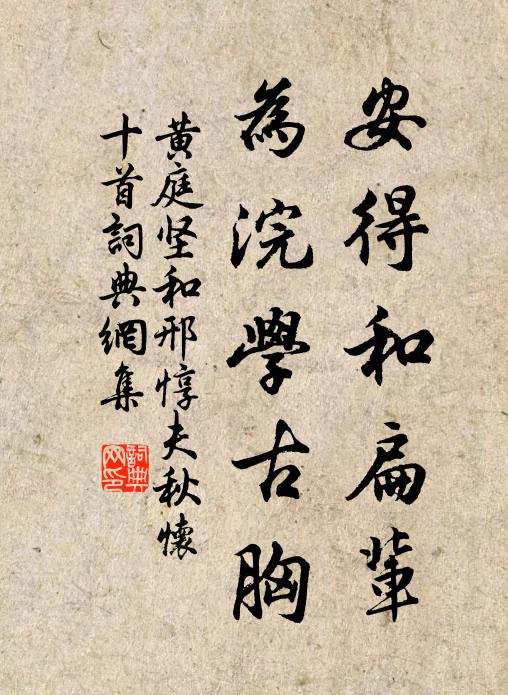 安得和扁輩
為浣學古胸
黃庭坚和邢惇夫秋懷
十首詞典網集
詞典网印